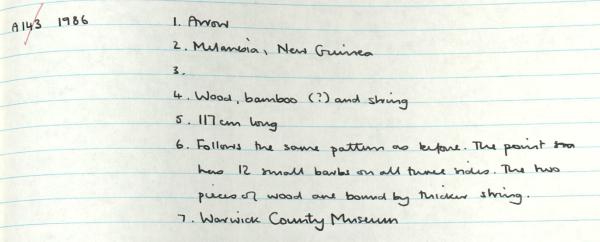 A143 1986 1. Arrow
2. Melanesia, New Guinea
3.
4. Wood, bamboo (?) and string
5. 117cm long
6. Follows the same pattern as before. The point
has 12 small barbs on all three sides. The two
pieces of wood are bound by thicker string.
7. Warwick County Museum